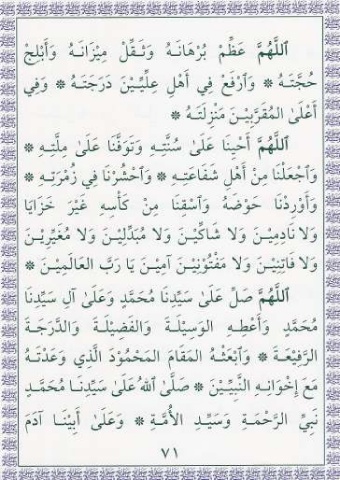 اَللَّهُمَّ عَظِّمْ بُرْهَانَهُ وَثَقِّلْ مِيْزَانَهُ وَأَبْلِجْ
حُجَّتَهُ ۞ وَارْفَعْ فِي أَهْلِ عِلِّيِّيْنَ دَرَجَتَهُ ۞ وَفِي
أَعْلَى المُقَرَّبِيْنَ مَنْزِلَتَهُ ۞
اَللَّهُمَّ أَحْيِنَا عَلَى سُنَّتِهِ وَتَوَفَّنَا عَلَى مِلَّتِهِ ۞
وَاجْعَلْنَا مِنْ أَهْلِ شَفَاعَتِهِ ۞ وَاحْشُرْنَا فِي زُمْرَتِهِ ۞
وَأَوْرِدْنَا حَوْضَهُ وَاسْقِنَا مِنْ كَأْسِهِ غَيْرَ خَزَايَا
وَلَا نَادِمِيْنَ وَلَا شَاكِّيْنَ وَلَا مُبَدِّلِيْنَ وَلَا مُغَيِّرِيْنَ
وَلَا فَاتِنِيْنَ وَلَا مَفْتُوْنِيْنَ آمِيْنَ يَا رَبَّ العَالَمِيْنَ ۞
اَللَّهُمَّ صَلِّ عَلَى سَيِّدِنَا مُحَمَّدٍ وَعَلَى آلِ سَيِّدِنَا
مُحَمَّدٍ وَأَعْطِهِ الوَسِيْلَةَ وَالفَضِيْلَةَ وَالدَّرَجَةَ
الرَّفِيْعَةَ ۞ وَابْعَثْهُ المَقَامَ المَحْمُوْدَ الَّذِي وَعَدْتَهُ
مَعَ إِخْوَانِهِ النَّبِيِّيْنَ ۞ صَلَّى اللهُ عَلَى سَيِّدِنَا مُحَمَّدٍ
نَبِيِّ الرَّحْمَةِ وَسَيِّدِ الأُمَّةِ ۞ وَعَلَى أَبِيْنَا آدَمَ
٧١